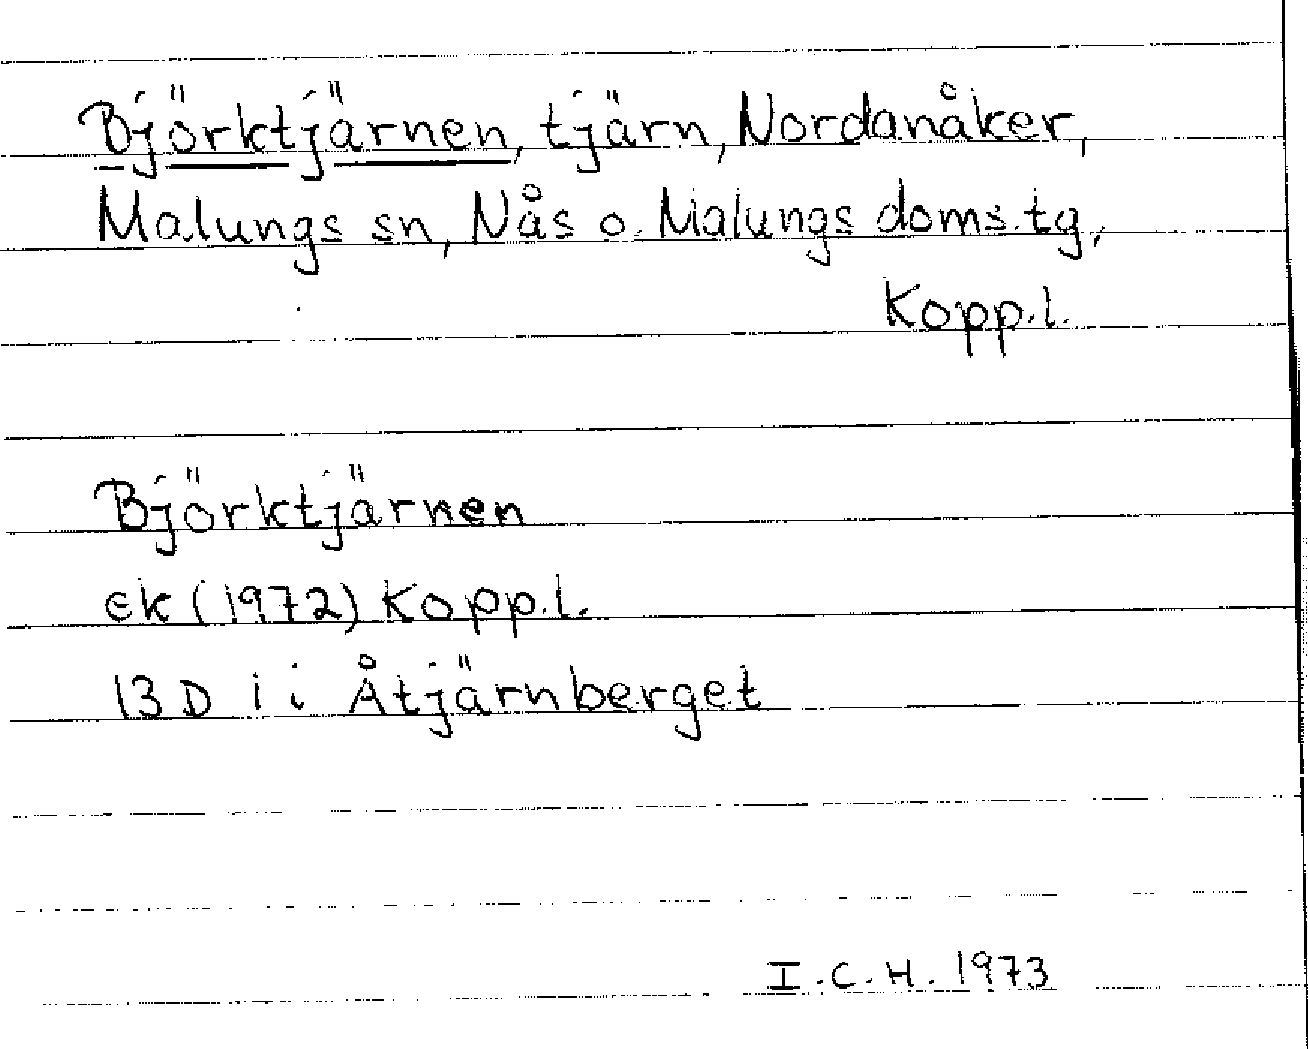 Björktjärnen, tjärn, Nordanåker,
Malungs sn, Nås o. Malungs doms.tg,
Kopp.l.
Björktjärnen
ek (1972) Kopp.l.
13 D i i Åtjärnberget
I.C.H. 1973